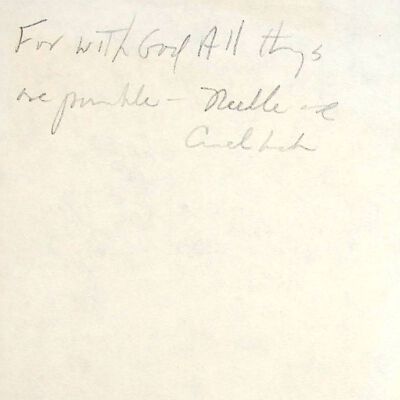 For with God All things
are possible – Needle and
Camel